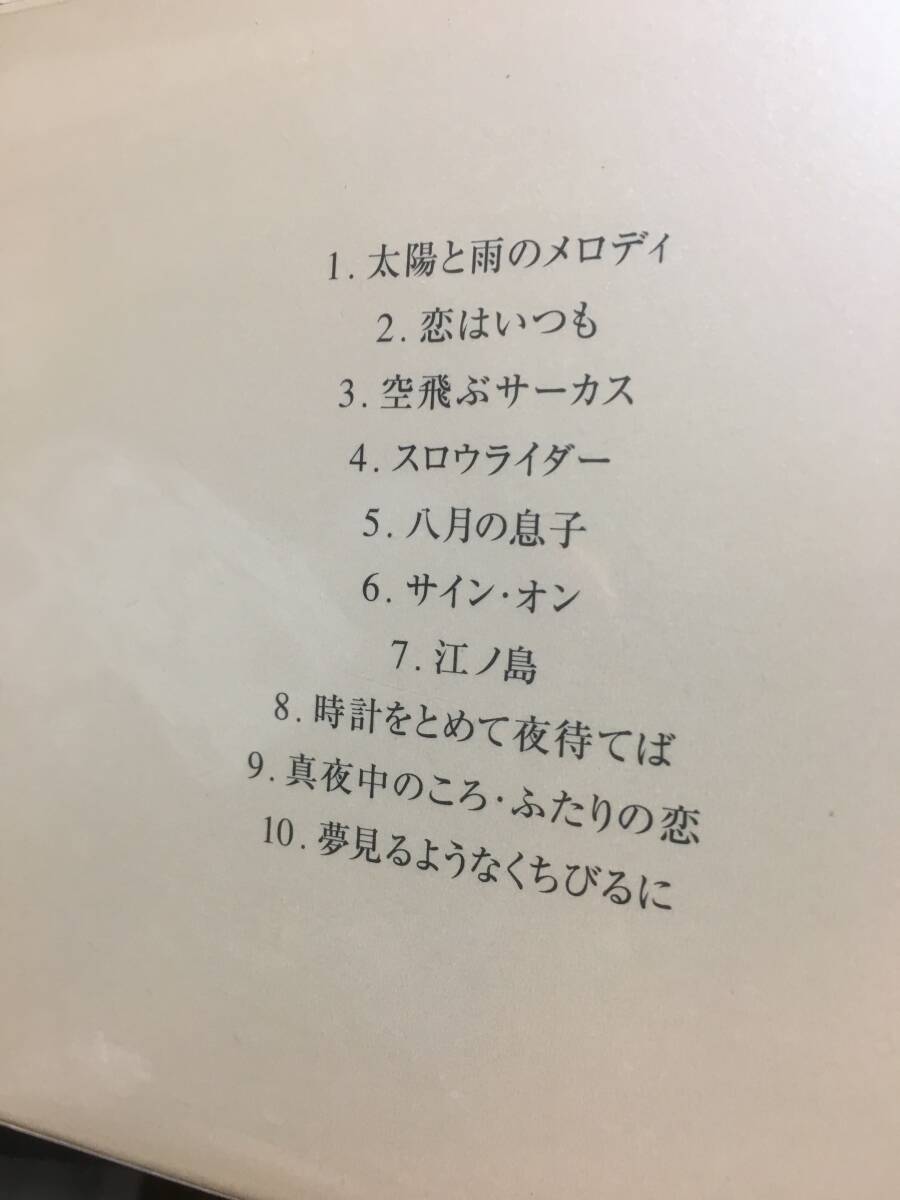 1. 太陽と雨のメロディ
2. 恋はいつも
3. 空飛ぶサーカス
4. スロウライダー
5. 八月の息子
6. サイン・オン
7. 江ノ島
8. 時計をとめて夜待てば
9. 真夜中のころ・ふたりの恋
10. 夢見るようなくちびるに